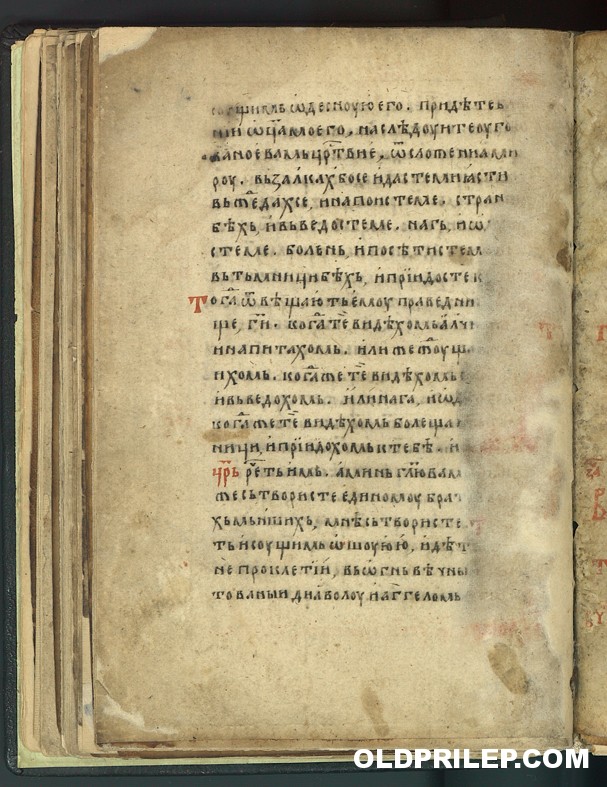 сꙋщимь ѡдесноуюего. придѣтеб
нїи ѿц҃амоего, наслѣдоуитеоуго
ваноевамьцр҃твие, ѿсложенїами
роу. вьзалкахбосе идастемиꙗсти
вьжедахсе, инапоистеме. стран
бѣхь, ивьведостеме. нагь, иѡ
стеме. болень, ипосѣтистем
вьтьмницибѣхь, ипрїидостек
Тогда ѿвѣщаютьемоу праведни
ще, ги. когдате видѣхомьалч
инапитахомь. илижежедоущ
ихомь. когдажете видѣхомь
ивьведохомь. илинага, иѡд
когдажете видѣхомь болеща
ници, иприидохомь ктебѣ. и
цр҃ь речетьимь. аминь глювам
жесьтвористе единомоу брат
хьмьншихь, мнѣсьтвористе
тьисоущимь ѡшоуюю, идѣт
не проклетїи, вьѡгньвѣчны
тованыи диаволоу иаггеломь
OLDPRILEP.COM